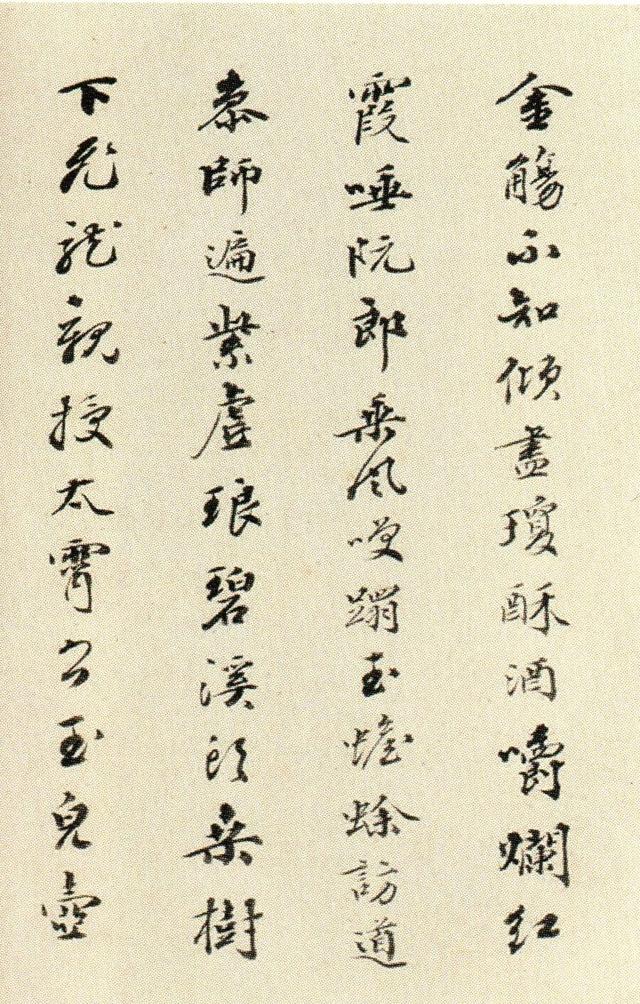 金觴不知傾盡瓊酥酒嚼爛紅
霞唾阮郎乘風蹋玉蟾蜍訪道
叅師遍紫虛琅碧溪頭桑樹
下龍親授太霄公玉壺